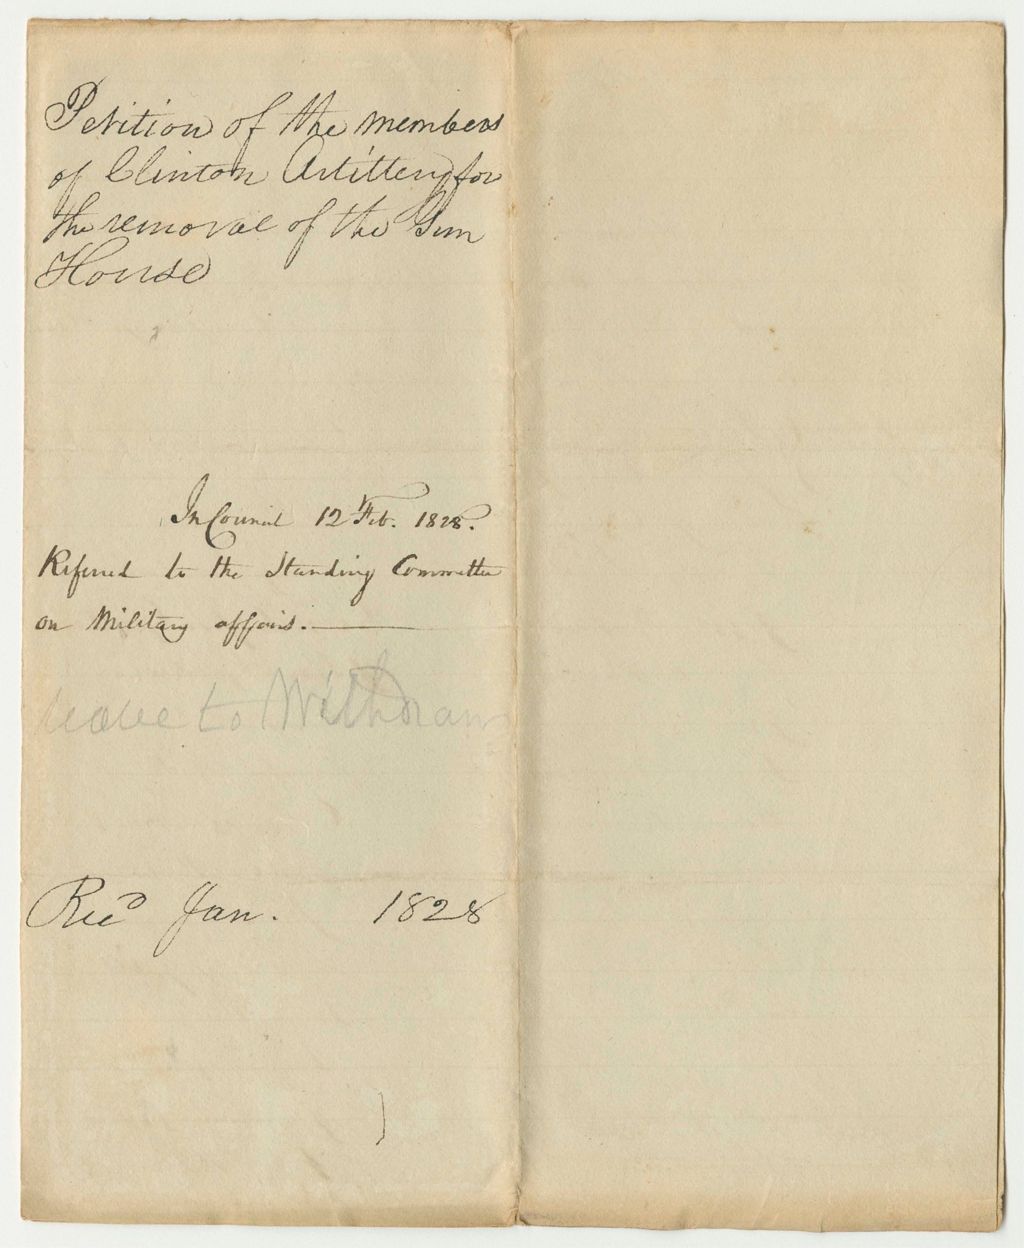 Petition of the members
of Clinton Artillery for
the removal of the Gun
House
In Council 12 Feb. 1828.
Referred to the Standing Committee
on Military affairs.
leave to Withdraw
Recd Jan. 1828